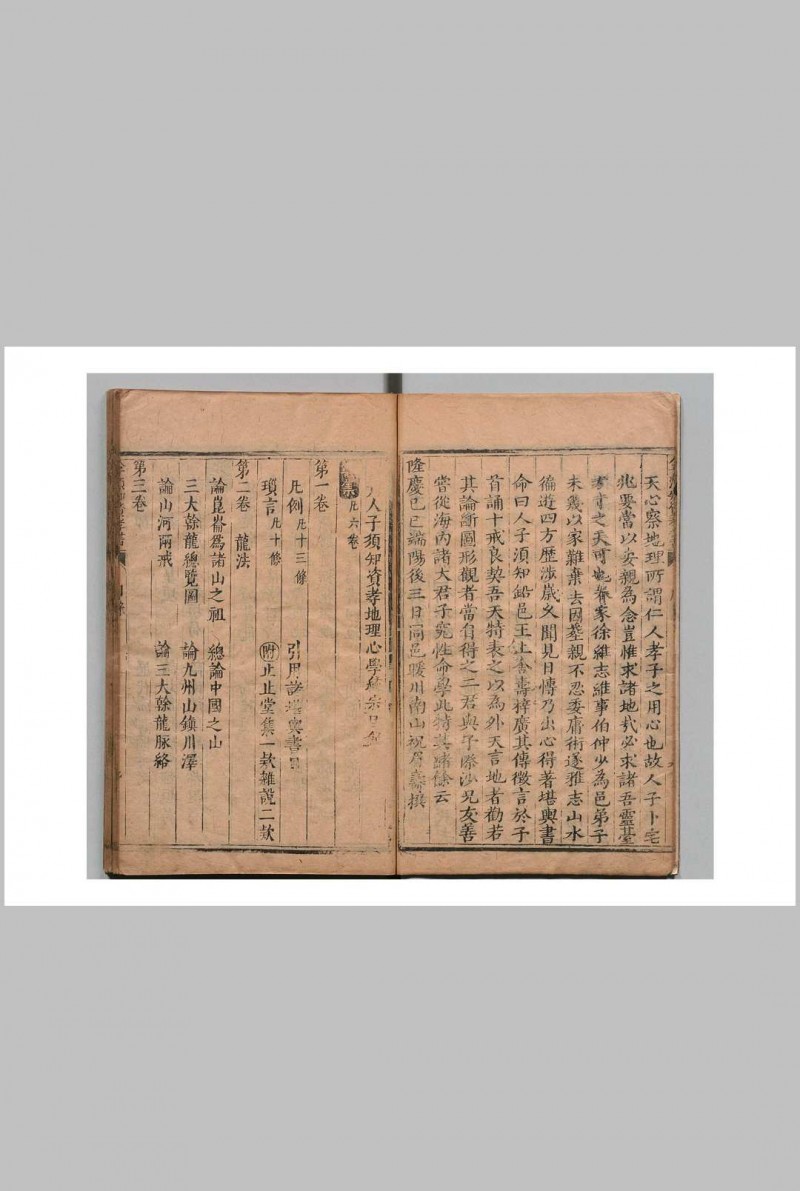 天心察地理所謂仁人孝子之用心也故人子卜宅
兆要當以安親為念豈惟求諸地哉必求諸吾靈臺
之天可也眷家徐維志維事伯仲少為邑弟子
未幾以家難棄去因塟親不忍委庸術遂雅志山水
徧遊四方歷涉歲乂聞見日愽乃出心得著堪輿書
命曰人子須知鉛邑王上舍壽梓廣其傳徵言於予
昔誦十戒良契吾天特表之以為外天言地者勸若
其論斷圖形觀者當自得之二君與予際沙兄友善
嘗從海內諸大君子究性命學此特其緒餘云
隆慶己巳端陽後三日同邑暖川南山況
人子須知資孝地理心學統宗目
凡六卷
第一卷
凡例 凡十三條 引用諸堪輿書目
瑣言 凡十條 附 止止堂集一欵雜說二欵
第二卷 龍法
論崑崙爲諸山之祖 總論中國之山
三大榦龍總覽圖 論九州山鎮川澤
論山河兩戒 論三大榦龍脉絡
第三卷